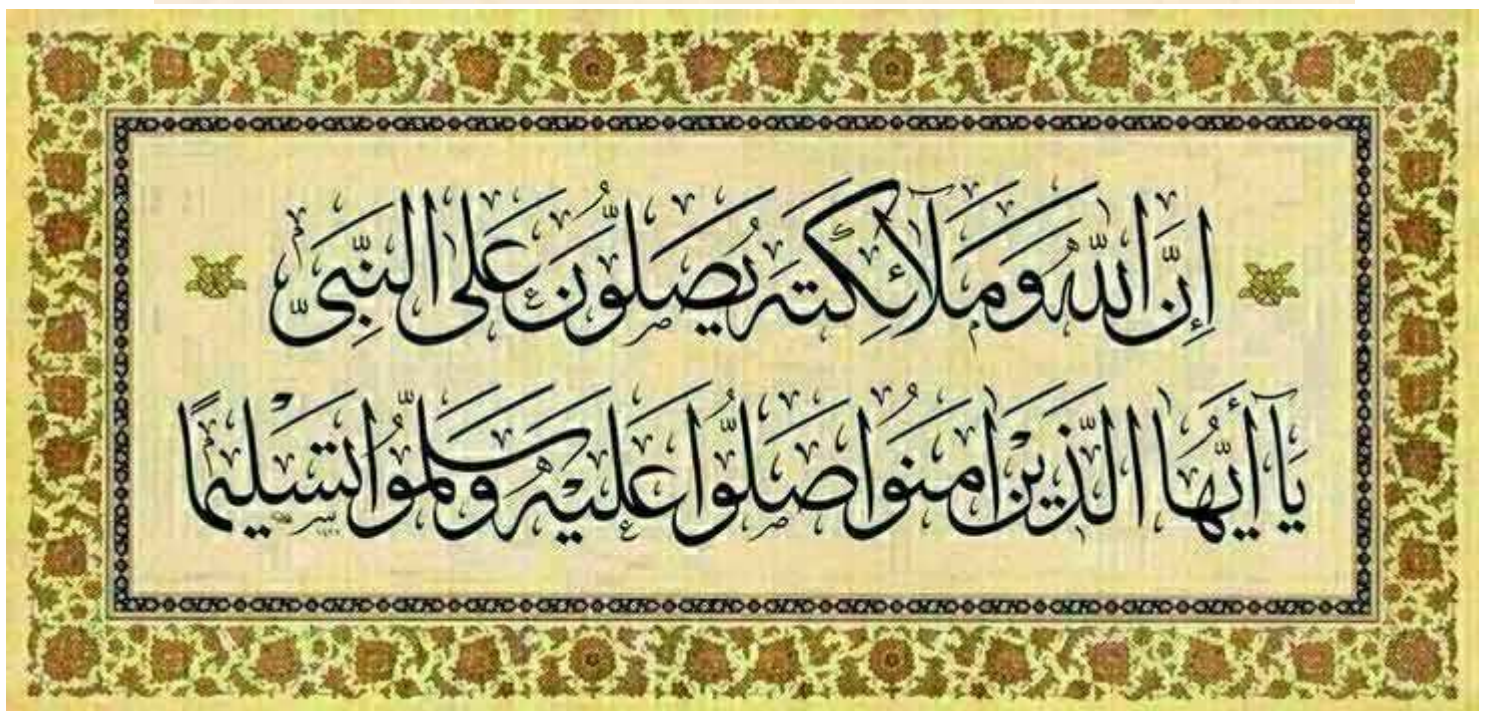 إِنَّ اللّٰهَ وَمَلَآئِكَتَهُ يُصَلُّونَ عَلَى النَّبِيِّ
يَآ أَيُّهَا الَّذِيْنَ اٰمَنُوا صَلُّوا عَلَيْهِ وَسَلِّمُوا تَسْلِيْمًا